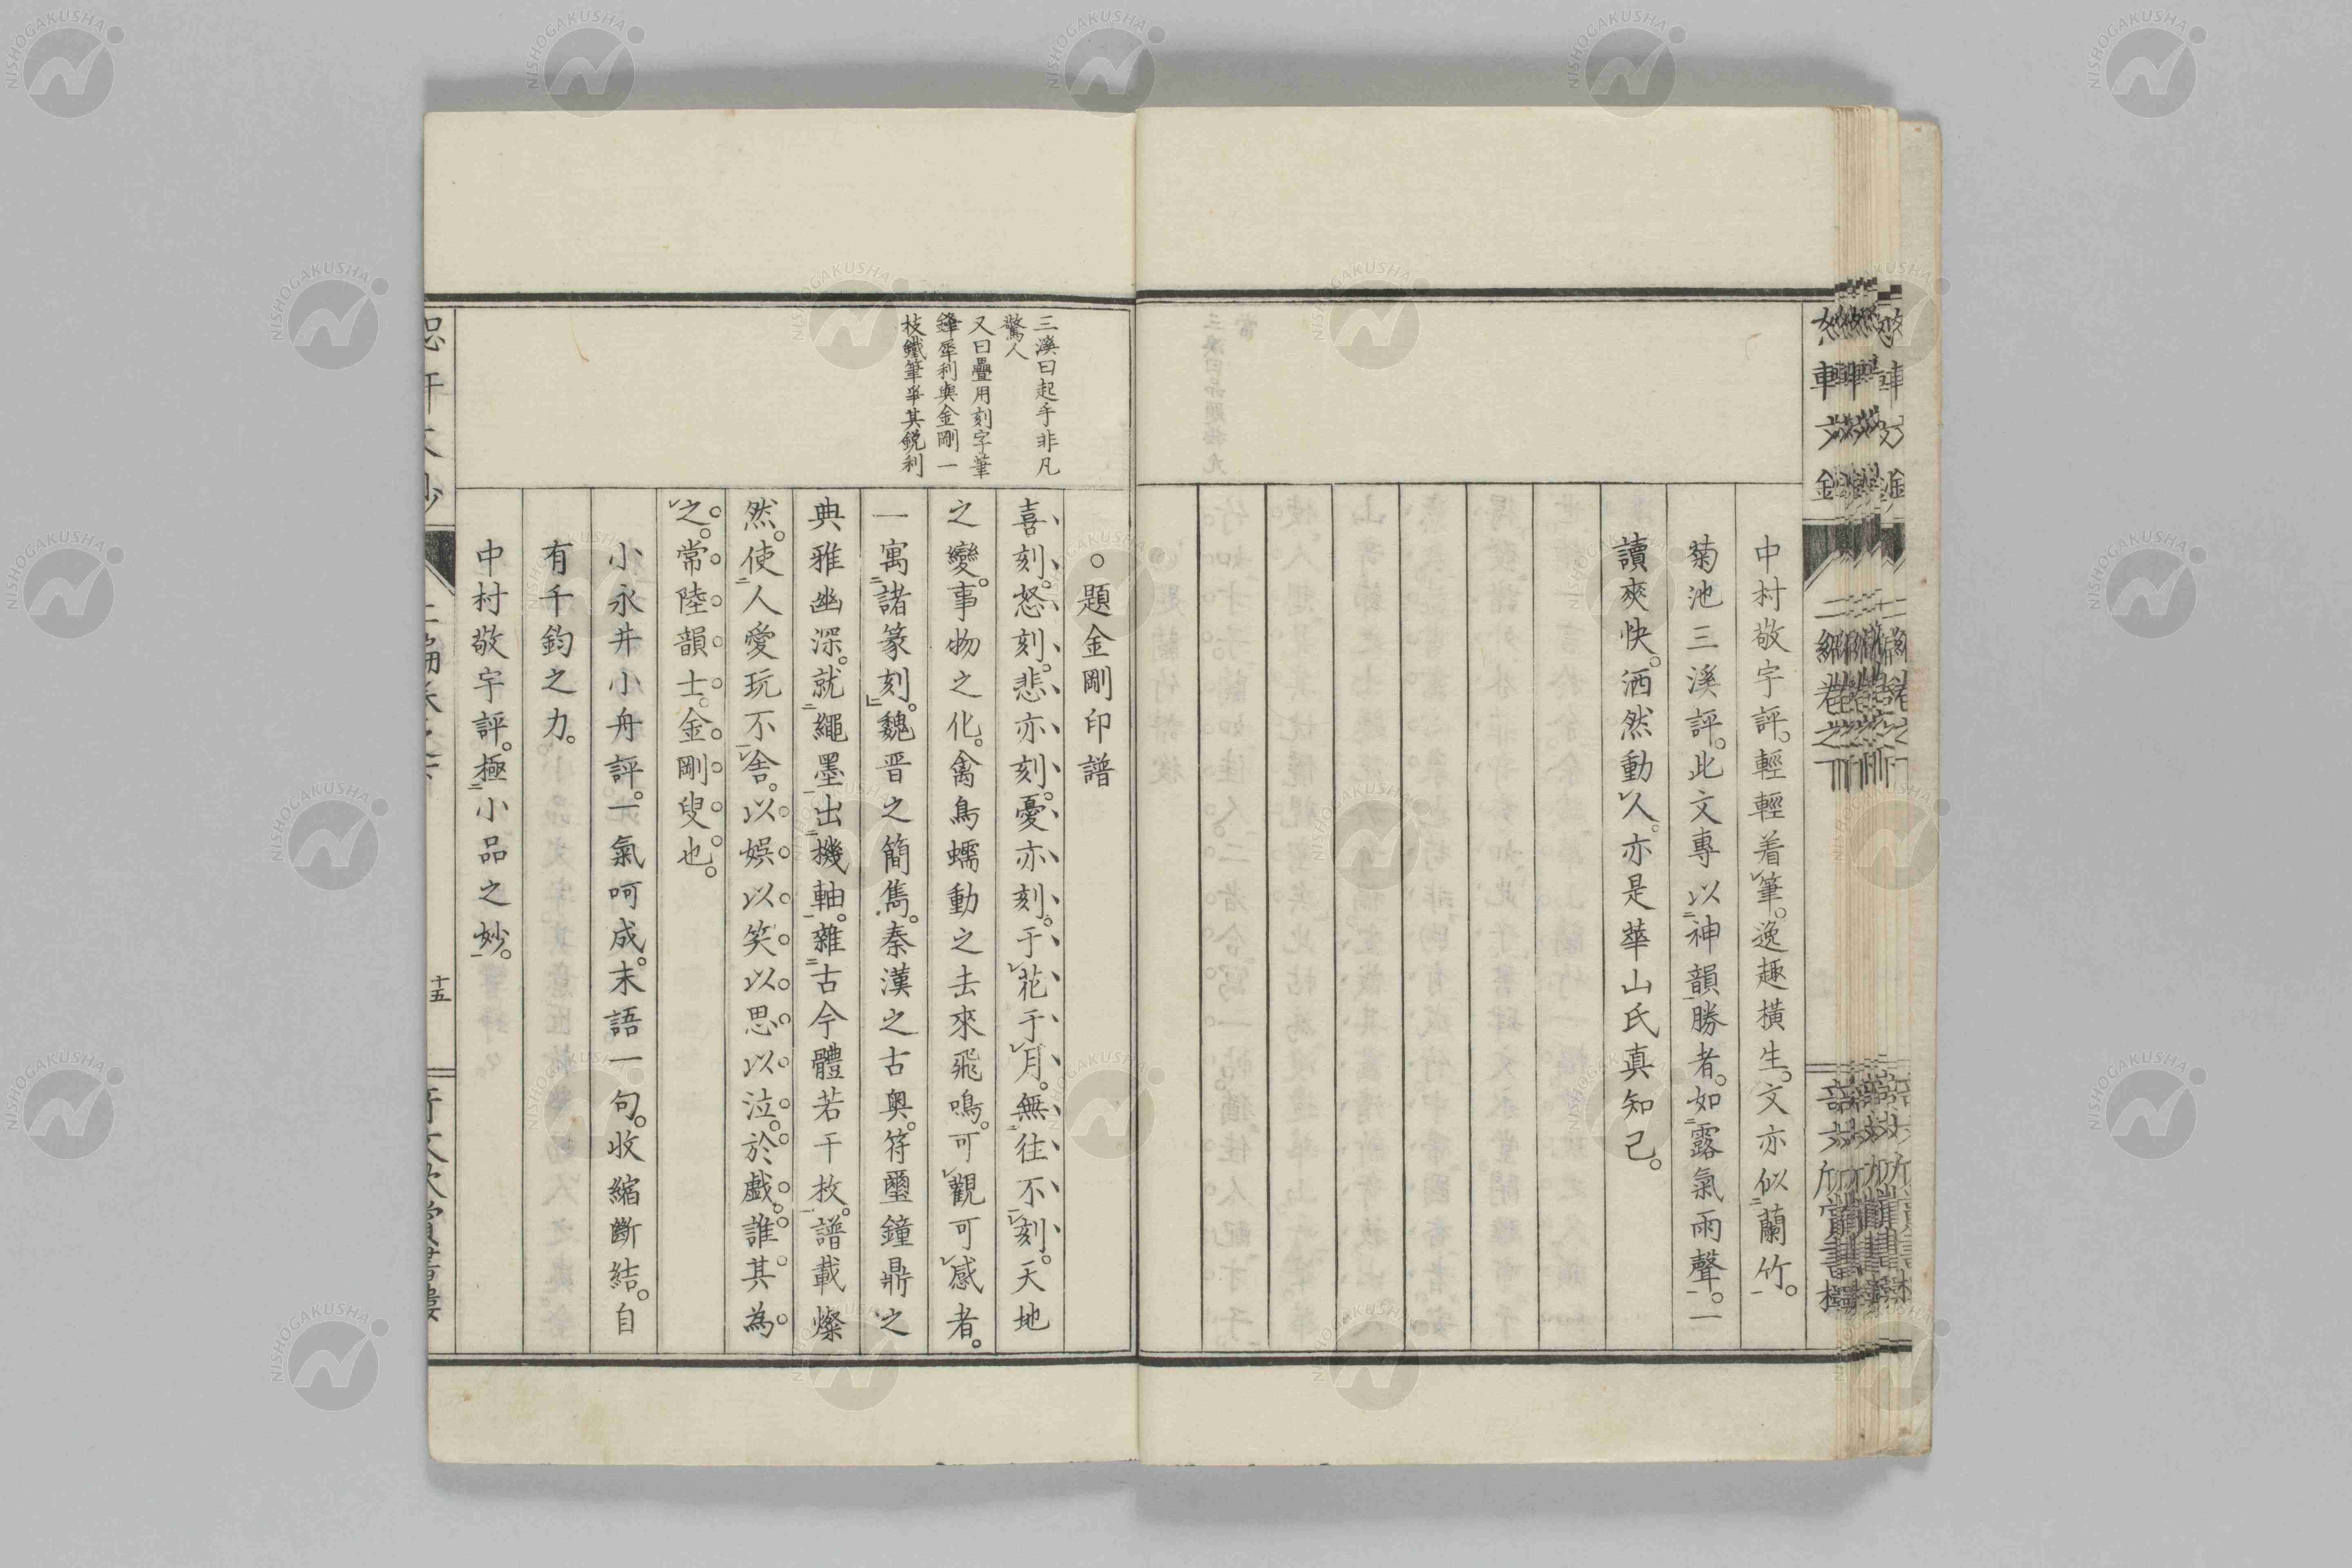 中村敬宇評。輕輕着筆。逸趣橫生。文亦似蘭竹。
菊池三溪評。此文專以神韻勝者。如露氣雨聲。一
讀爽快。洒然動人。亦是華山氏真知己。
三溪曰起手非凡
驚人
又曰疊用刻字筆
鋒犀利與金剛一
枝鐵筆爭其銳利
○題金剛印譜
喜刻。怒刻。悲亦刻。憂亦刻。于花于月。無往不刻。天地
之變。事物之化。禽鳥蠕動之去來飛鳴。可觀可感者。
一寓諸篆刻。魏晋之簡雋。秦漢之古奧。符璽鐘鼎之
典雅幽深。就繩墨出機軸。雜古今體若干枚。譜載燦
然。使人愛玩不舍。以娯以笑以思以泣。於戲。誰其為
之。常陸韻士。金剛叟也。
小永井小舟評。一氣呵成。末語一句。收縮斷結。自
有千鈞之力。
中村敬宇評。極小品之妙。
十五
NISHOGAKUSHA